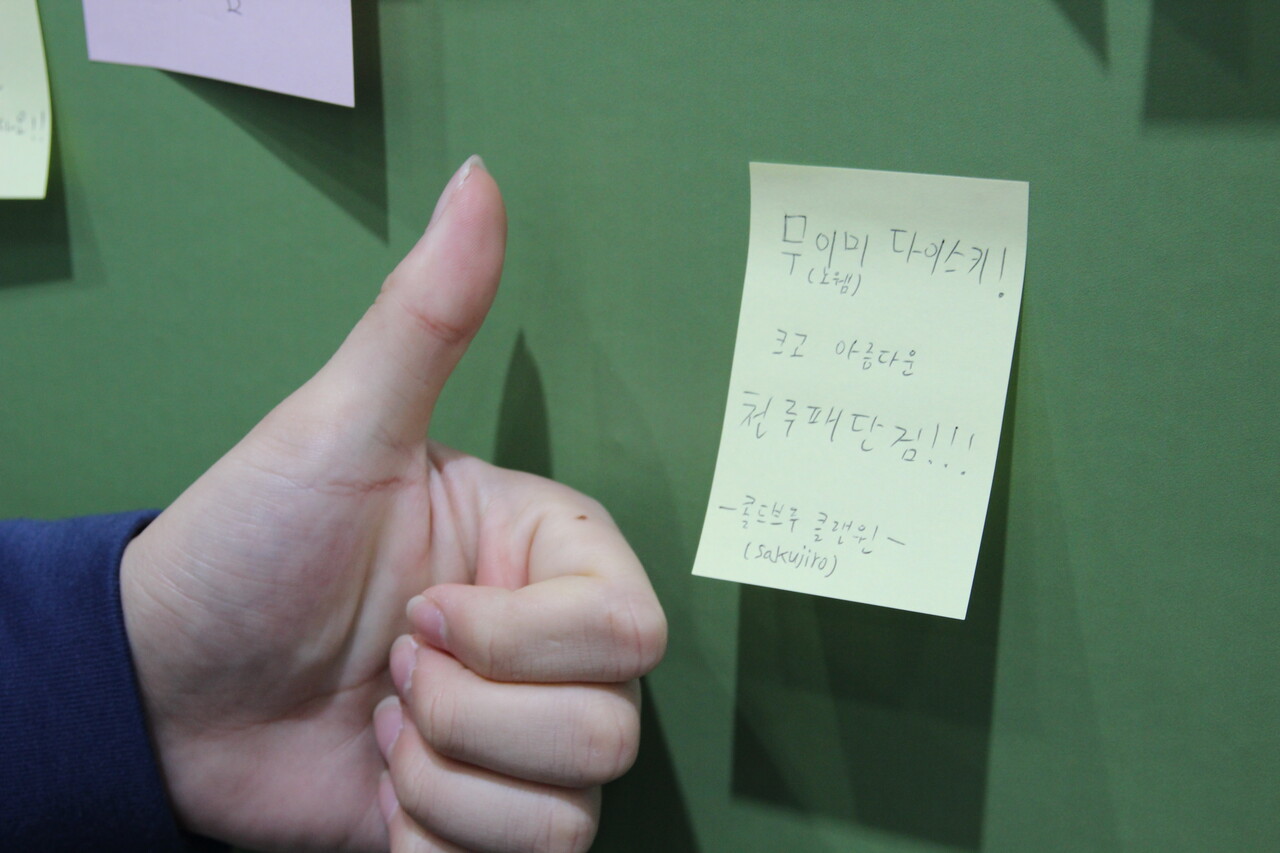 무이미 다이스키!
(노웸)
크고 아름다운
천루패단짐!!!
-콜드브루 클랜원-
(sakujiro)